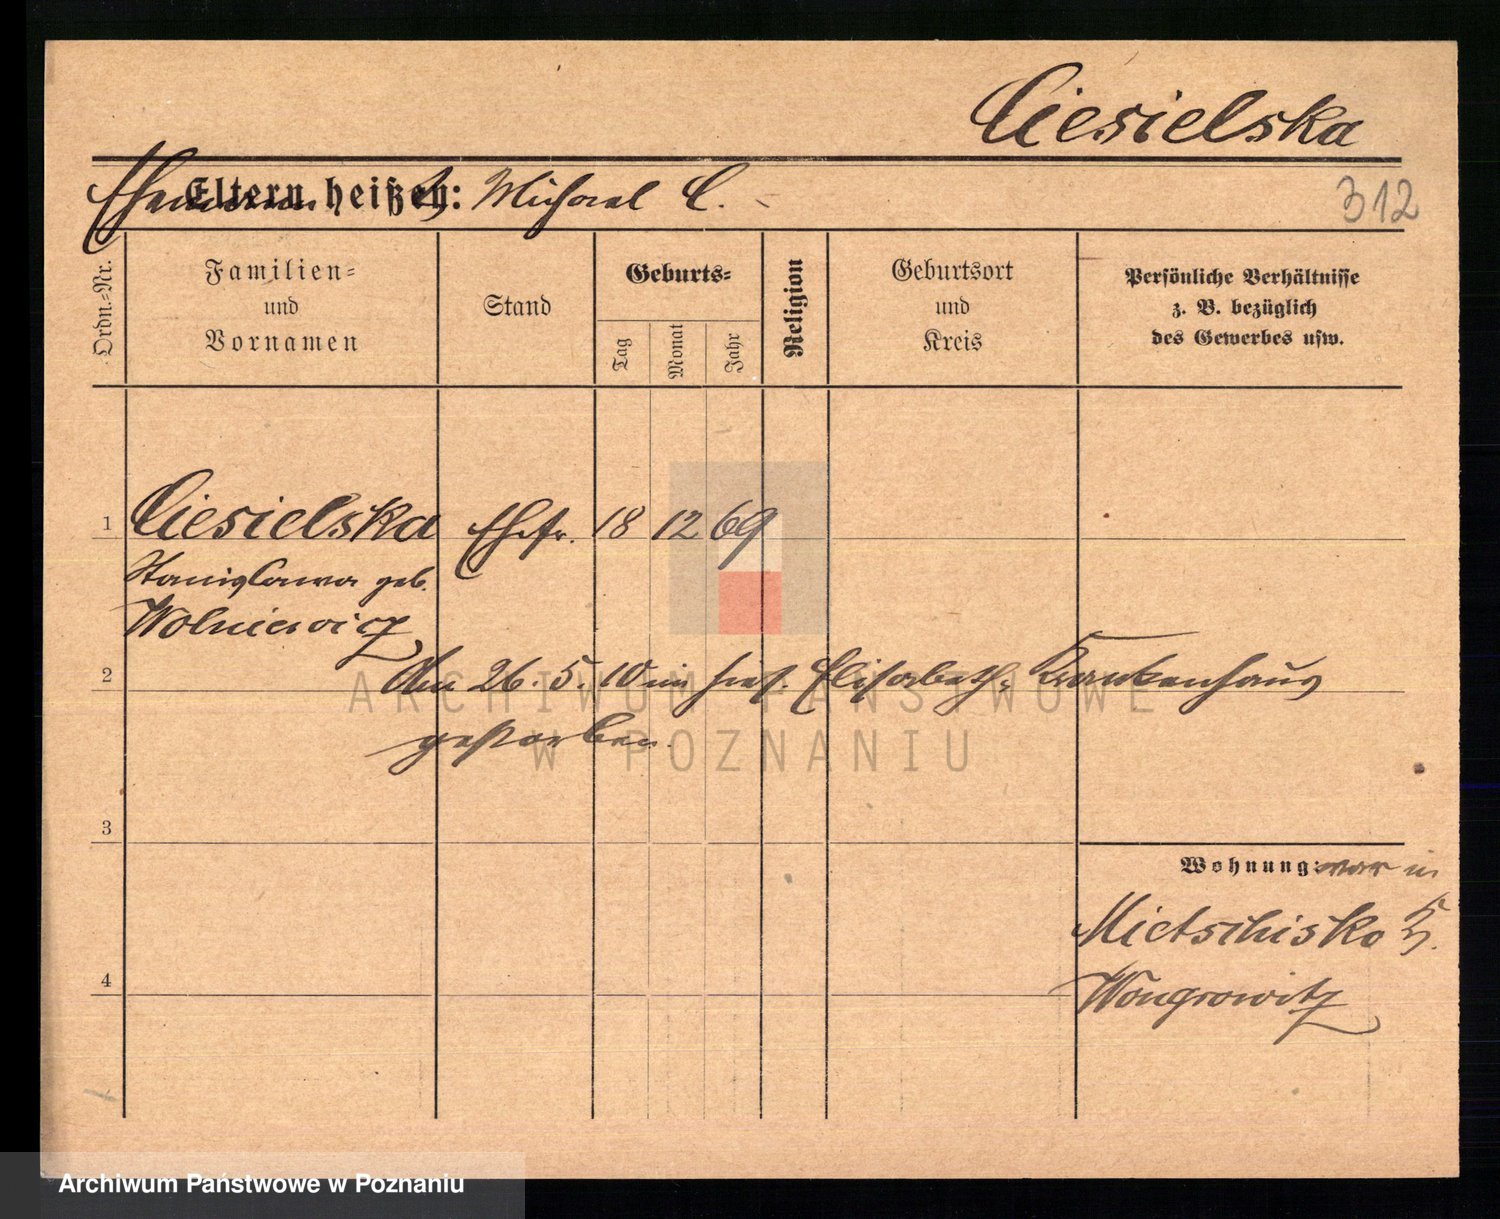 Ciesielska
Eltern heißen:
Ehemann Michael C.
312
Ordn.=Nr.
Familien=
und
Vornamen
Stand
Geburts=
Tag
Monat
Jahr
Religion
Geburtsort
und
Kreis
Persönliche Verhältnisse
z. B. bezüglich
des Gewerbes usw.
1 Ciesielska Ehefr. 18 12 69
Stanislawa geb.
Wolniewicz
2 Am 26. 5. 10 im hies. Elisabeth= Krankenhaus
gestorben.
3
Wohnung: war in
Mietschisko K.
4 Wongrowitz
ARCHIWUM PAŃSTWOWE
W POZNANIU
Archiwum Państwowe w Poznaniu